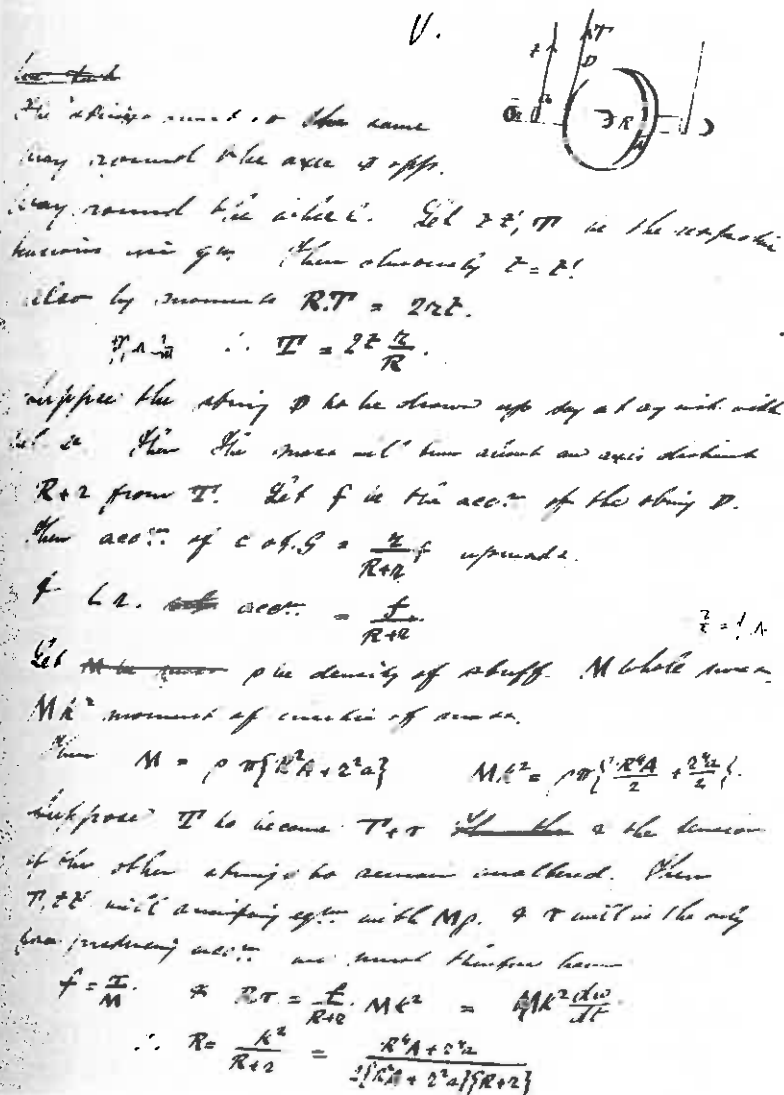 V.
The strings wound in the same
way round the axle & opp.
way round the wheel. Let t t', T be the respective
tensions in eqm. Then obviously t = t'.
also by moments R.T = 2rt.
∴ T = 2t r/R.
Suppose the string D to be drawn up say at D with
Then the mass will turn about an axis distant
R+r from T. Let f be the accn. of the string D.
Then accn. of C of G = r/(R+r) f upwards.
& accn. = f/(R+r)
Let ρ be density of stuff. M whole mass
Mk² moment of inertia of mass.
Then M = ρπ{R²A + r²a} Mk² = ρπ{R⁴A/2 + r⁴a/2}.
Suppose T to become T+τ & the tension
of the other strings to remain unaltered. Then
T, t t' will eqm. with Mg. & τ will be the only
force producing accn. we must therefore have
f = τ/M. & Rτ = f/(R+r) . Mk² = Mk² dω/dt
∴ R = k²/(R+r) = (R⁴A + r⁴a)/(2{R²A + r²a}{R+r})